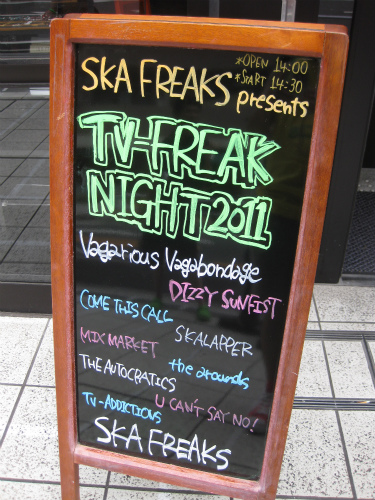 SKA FREAKS
*OPEN 14:00
*START 14:30
presents
TV-FREAK
NIGHT 2011
Vagarious Vagabondage
DIZZY SUNFIST
COME THIS CALL
SKALAPPER
MIX MARKET
the arounds
THE AUTOCRATICS
TV-ADDICTIONS
U CAN'T SAY NO!
SKA FREAKS